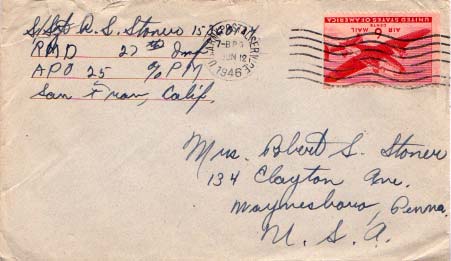 S/Sgt R. S. Stoner
RMD 27th Inf
APO 25 % PM
San Fran, Calif.
U.S. ARMY POSTAL SERVICE
7-B PM
JUN 12
1946
UNITED STATES OF AMERICA
AIR MAIL
6 CENTS
Mrs. Robert S. Stoner
134 Clayton Ave.
Waynesboro, Penna.
U. S. A.